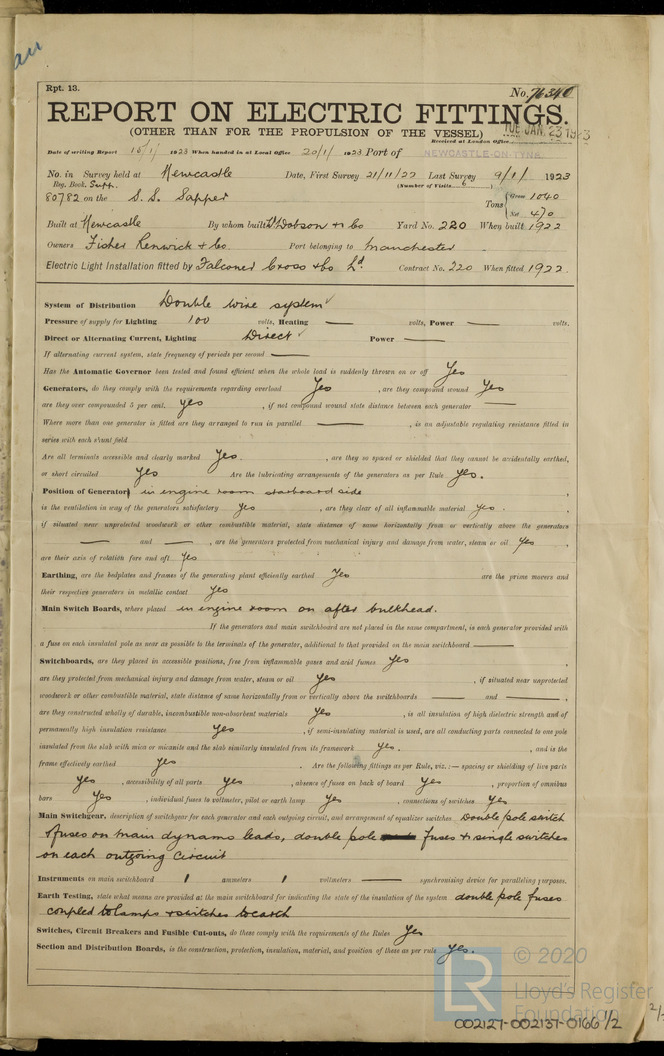 au
Rpt. 13.
No. 76340
REPORT ON ELECTRIC FITTINGS.
(OTHER THAN FOR THE PROPULSION OF THE VESSEL)
TUE JAN. 23 1923
Received at London Office
Date of writing Report 15/1/ 1923 When handed in at Local Office 20/1/ 1923 Port of NEWCASTLE-ON-TYNE
No. in Survey held at Newcastle Date, First Survey 21/11/22 Last Survey 9/1/ 1923
Reg. Book. Supp. (Number of Visits 6)
80782 on the S.S. Sapper Tons { Gross 1040
Net 470
Built at Newcastle By whom built W Dobson & Co Yard No. 220 When built 1922
Owners Fisher Renwick & Co Port belonging to Manchester
Electric Light Installation fitted by Falconer Cross & Co Ld. Contract No. 220 When fitted 1922.
System of Distribution Double wire system
Pressure of supply for Lighting 100 volts, Heating — volts, Power — volts.
Direct or Alternating Current, Lighting Direct Power —
If alternating current system, state frequency of periods per second —
Has the Automatic Governor been tested and found efficient when the whole load is suddenly thrown on or off Yes
Generators, do they comply with the requirements regarding overload Yes, are they compound wound Yes
are they over compounded 5 per cent. yes, if not compound wound state distance between each generator —
Where more than one generator is fitted are they arranged to run in parallel —, is an adjustable regulating resistance fitted in
series with each shunt field
Are all terminals accessible and clearly marked Yes., are they so spaced or shielded that they cannot be accidentally earthed,
or short circuited yes Are the lubricating arrangements of the generators as per Rule yes.
Position of Generator in engine room starboard side,
is the ventilation in way of the generators satisfactory yes, are they clear of all inflammable material yes.,
if situated near unprotected woodwork or other combustible material, state distance of same horizontally from or vertically above the generators
— and —, are the generators protected from mechanical injury and damage from water, steam or oil yes,
are their axis of rotation fore and aft yes
Earthing, are the bedplates and frames of the generating plant efficiently earthed Yes are the prime movers and
their respective generators in metallic contact yes
Main Switch Boards, where placed in engine room on after bulkhead.
If the generators and main switchboard are not placed in the same compartment, is each generator provided with
a fuse on each insulated pole as near as possible to the terminals of the generator, additional to that provided on the main switchboard —
Switchboards, are they placed in accessible positions, free from inflammable gases and acid fumes yes,
are they protected from mechanical injury and damage from water, steam or oil yes, if situated near unprotected
woodwork or other combustible material, state distance of same horizontally from or vertically above the switchboards — and —,
are they constructed wholly of durable, incombustible non-absorbent materials yes, is all insulation of high dielectric strength and of
permanently high insulation resistance yes, if semi-insulating material is used, are all conducting parts connected to one pole
insulated from the slab with mica or micanite and the slab similarly insulated from its framework yes., and is the
frame effectively earthed yes. Are the following fittings as per Rule, viz.:— spacing or shielding of live parts
yes, accessibility of all parts yes, absence of fuses on back of board yes, proportion of omnibus
bars yes, individual fuses to voltmeter, pilot or earth lamp yes, connections of switches yes
Main Switchgear, description of switchgear for each generator and each outgoing circuit, and arrangement of equalizer switches Double pole switch
& fuses on main dynamo leads, double pole fuses & single switches
on each outgoing circuit
Instruments on main switchboard 1 ammeters 1 voltmeters — synchronising device for paralleling purposes.
Earth Testing, state what means are provided at the main switchboard for indicating the state of the insulation of the system double pole fuses
coupled to lamps & switches to earth
Switches, Circuit Breakers and Fusible Cut-outs, do these comply with the requirements of the Rules Yes
Section and Distribution Boards, is the construction, protection, insulation, material, and position of these as per rule yes.
© 2020
LR Lloyd's Register
Foundation
002127-002137-0166 1/2